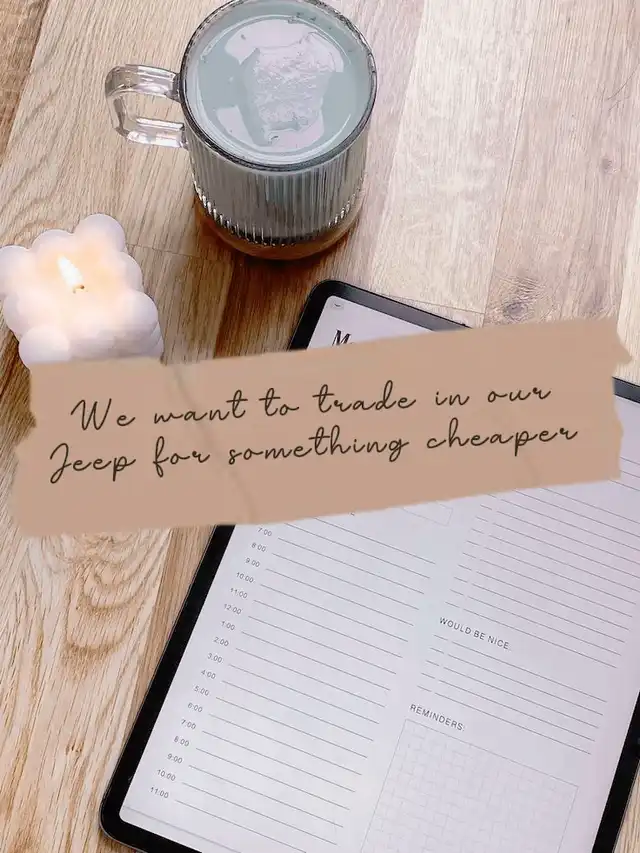 We want to trade in our
Jeep for something cheaper
7:00
8:00
9:00
10:00
11:00
12:00
1:00
2:00
3:00
4:00
5:00
6:00
7:00
8:00
9:00
10:00
11:00
WOULD BE NICE
REMINDERS: